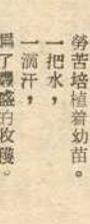 勞苦培植着幼苗。
一把水，
一滴汗，
爲了豐盛的收穫。